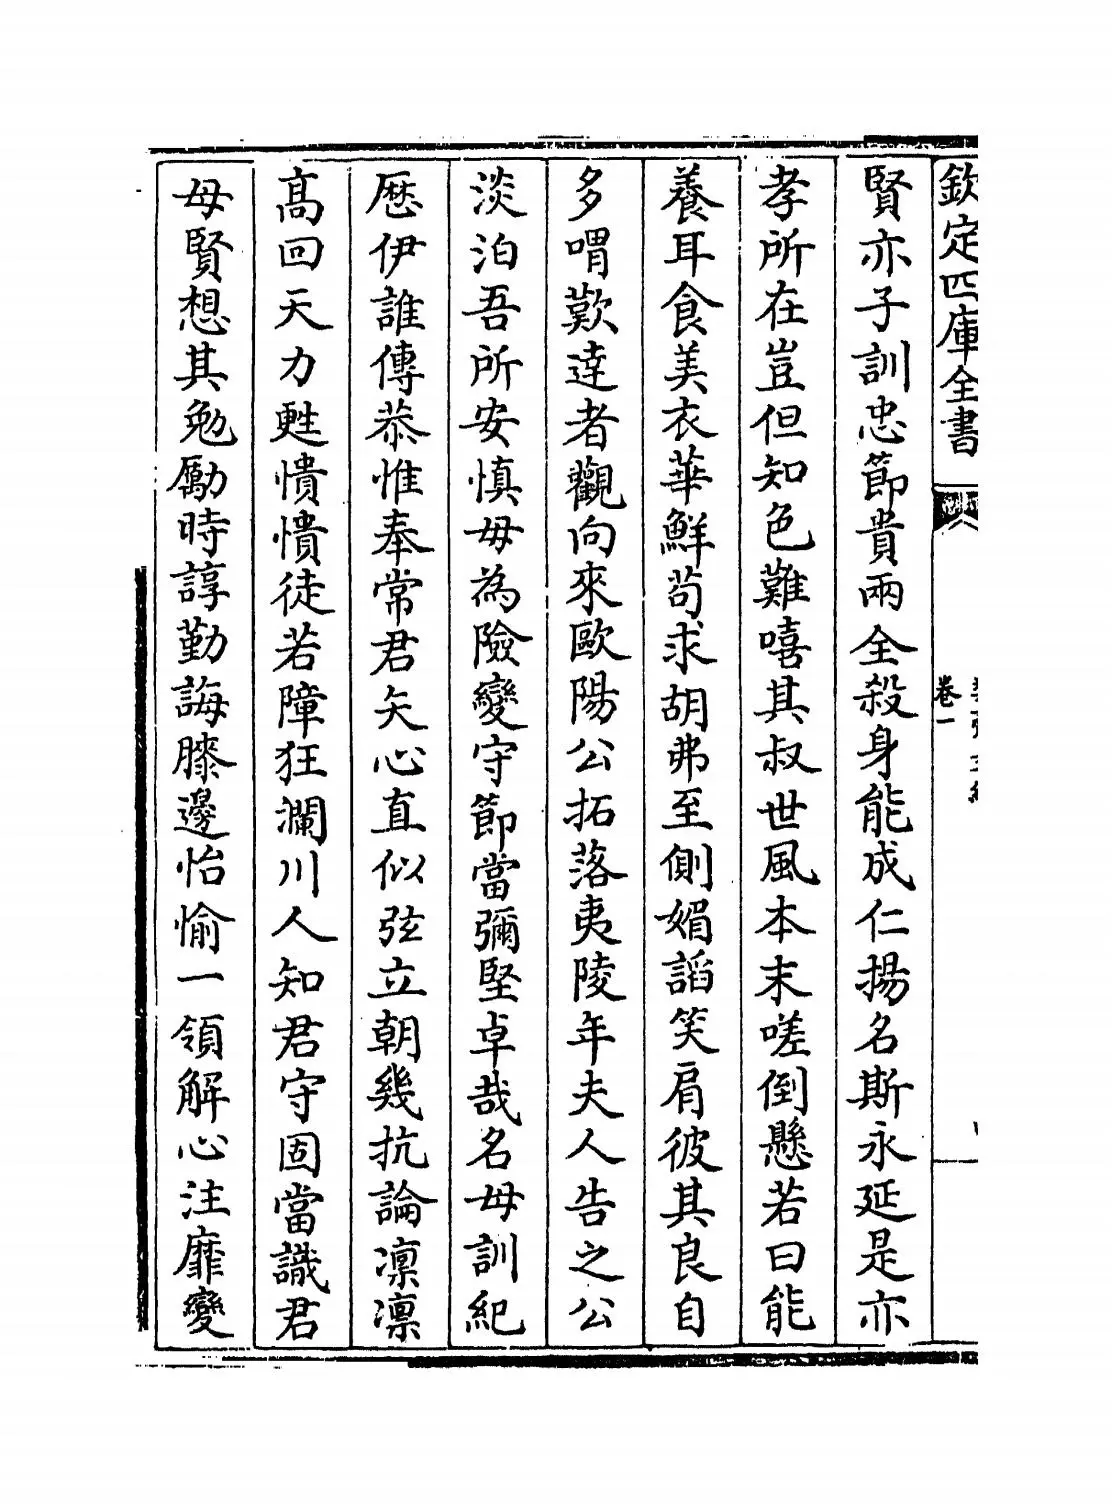 欽定四庫全書
卷一
賢亦子訓忠節貴兩全殺身能成仁揚名斯永延是亦
孝所在豈但知色難嘻其叔世風本末嗟倒懸若曰能
養耳食美衣華鮮茍求胡弗至側媚謟笑肩彼其良自
多喟歎達者觀向來歐陽公拓落夷陵年夫人告之公
淡泊吾所安慎毋為險變守節當彌堅卓哉名母訓紀
歴伊誰傳恭惟奉常君矢心直似弦立朝幾抗論凛凛
髙回天力甦憒憒徒若障狂瀾川人知君守固當識君
母賢想其勉勵時諄勤誨膝邊怡愉一領解心注靡變